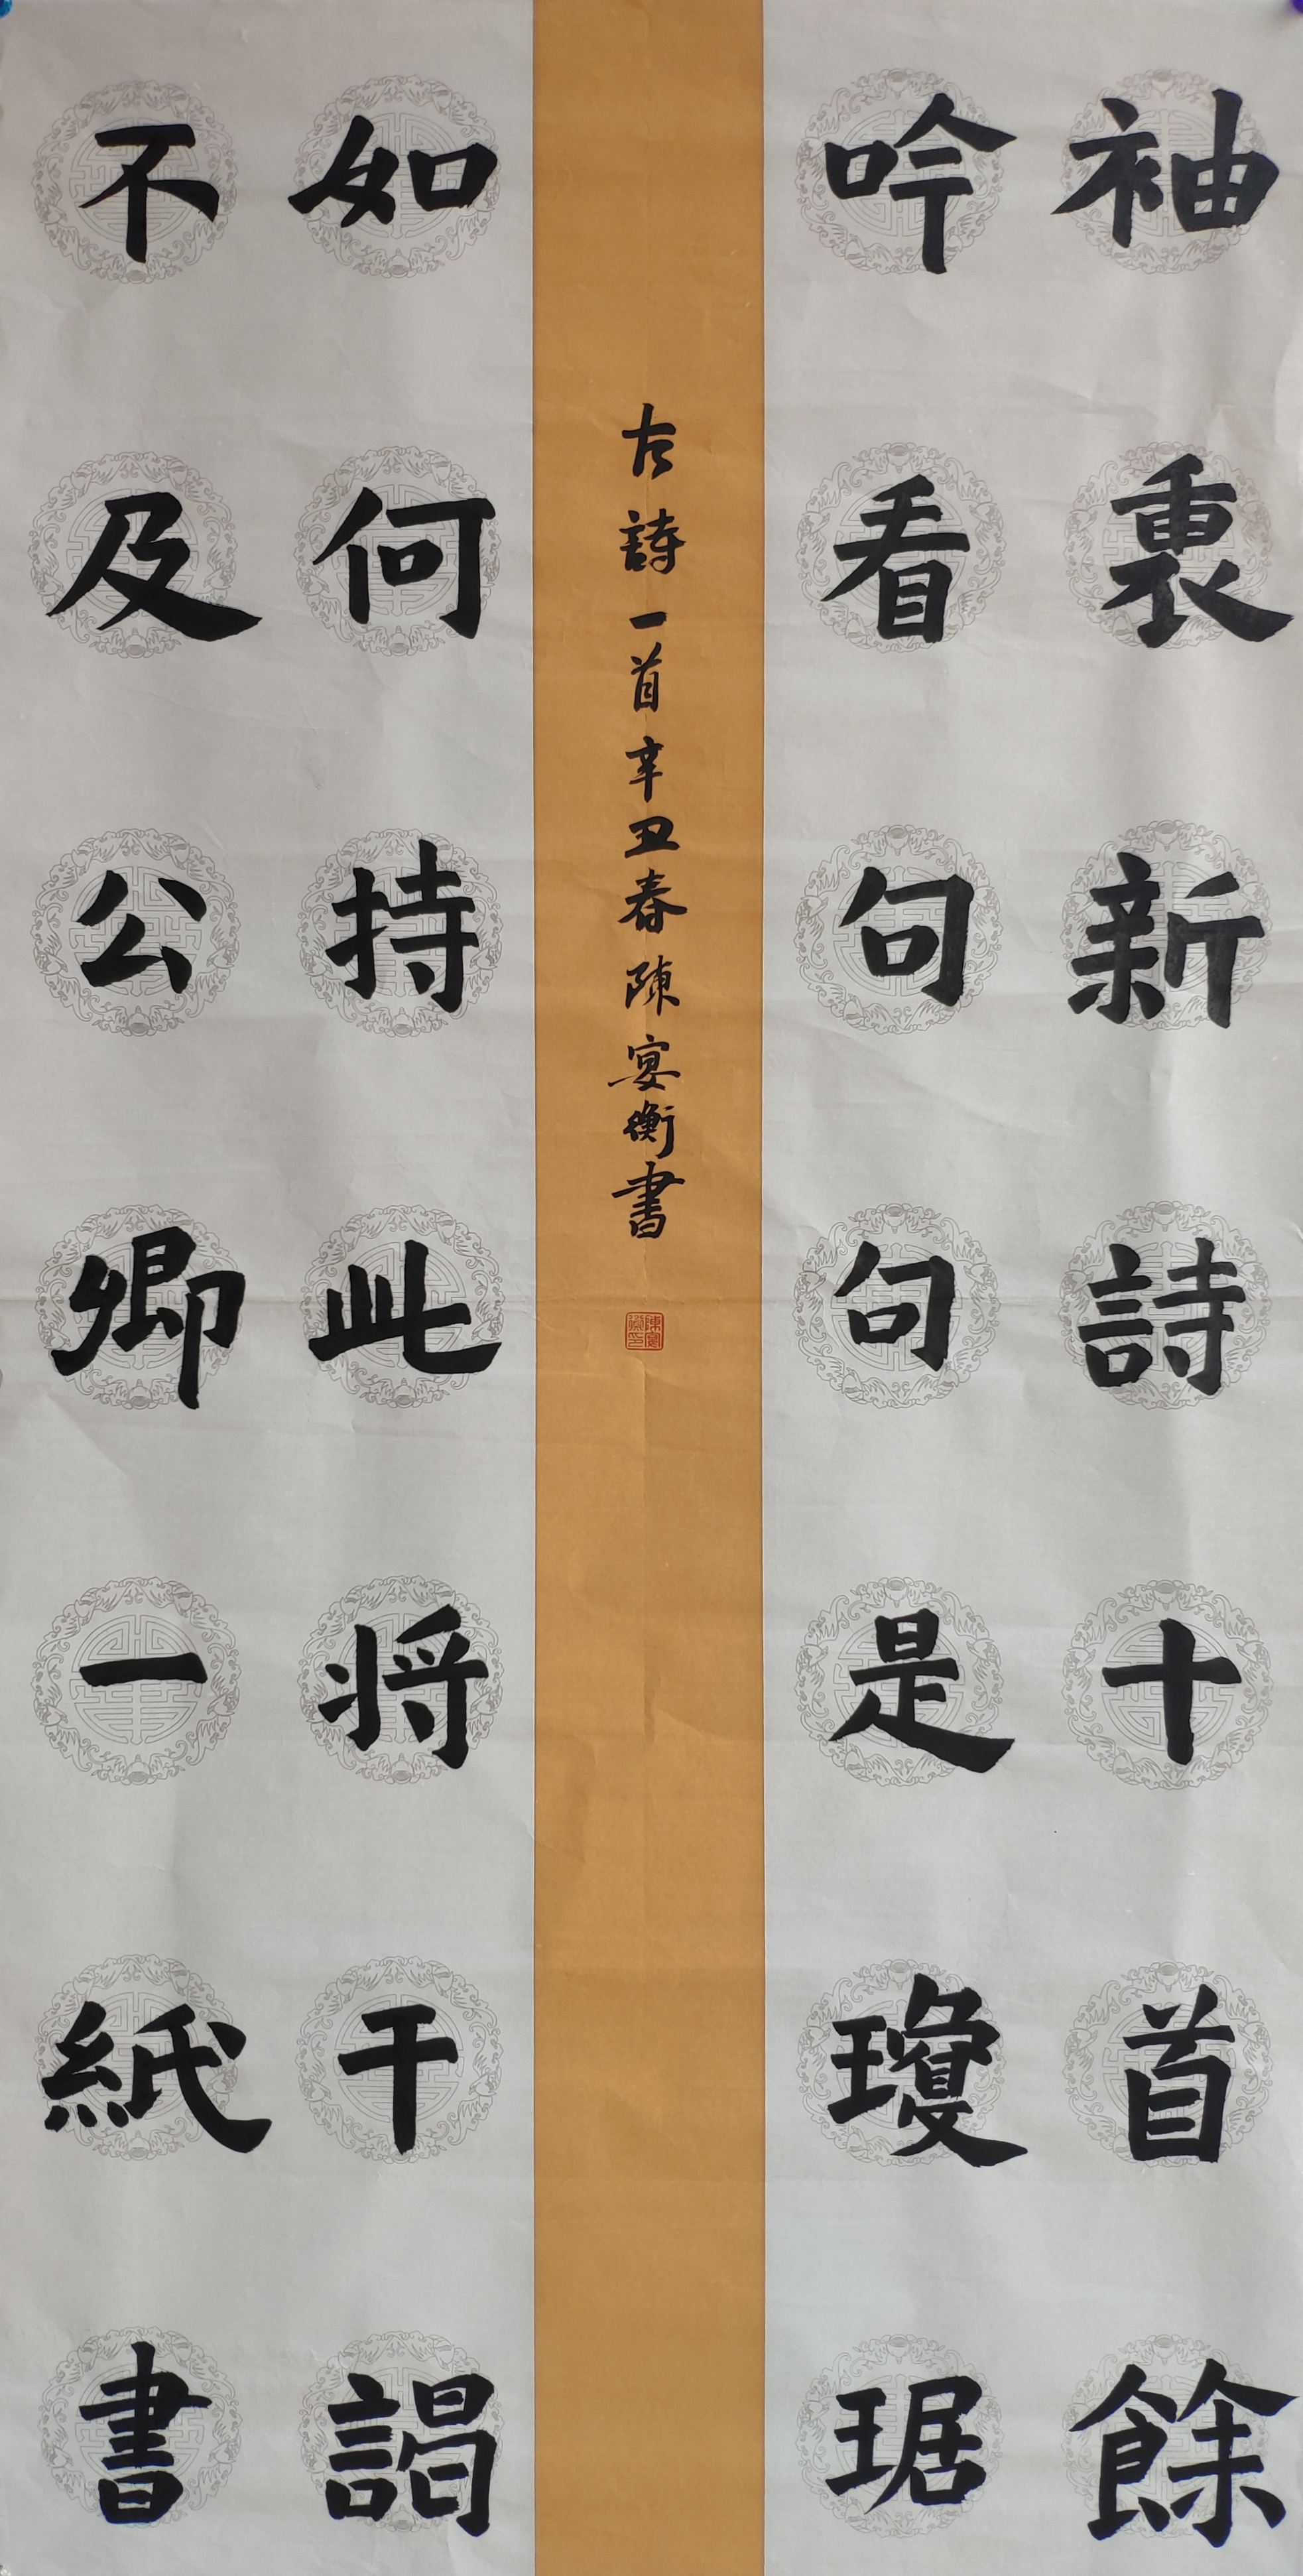 袖裏新詩十首餘
吟看句句是瓊琚
如何持此将干謁
不及公卿一紙書
古詩一首辛丑春陳宴衡書